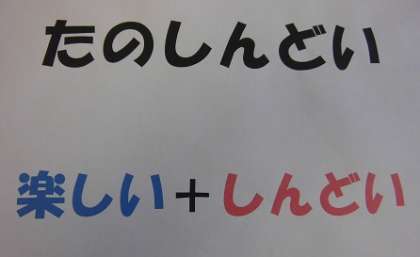 たのしんどい
楽しい+しんどい